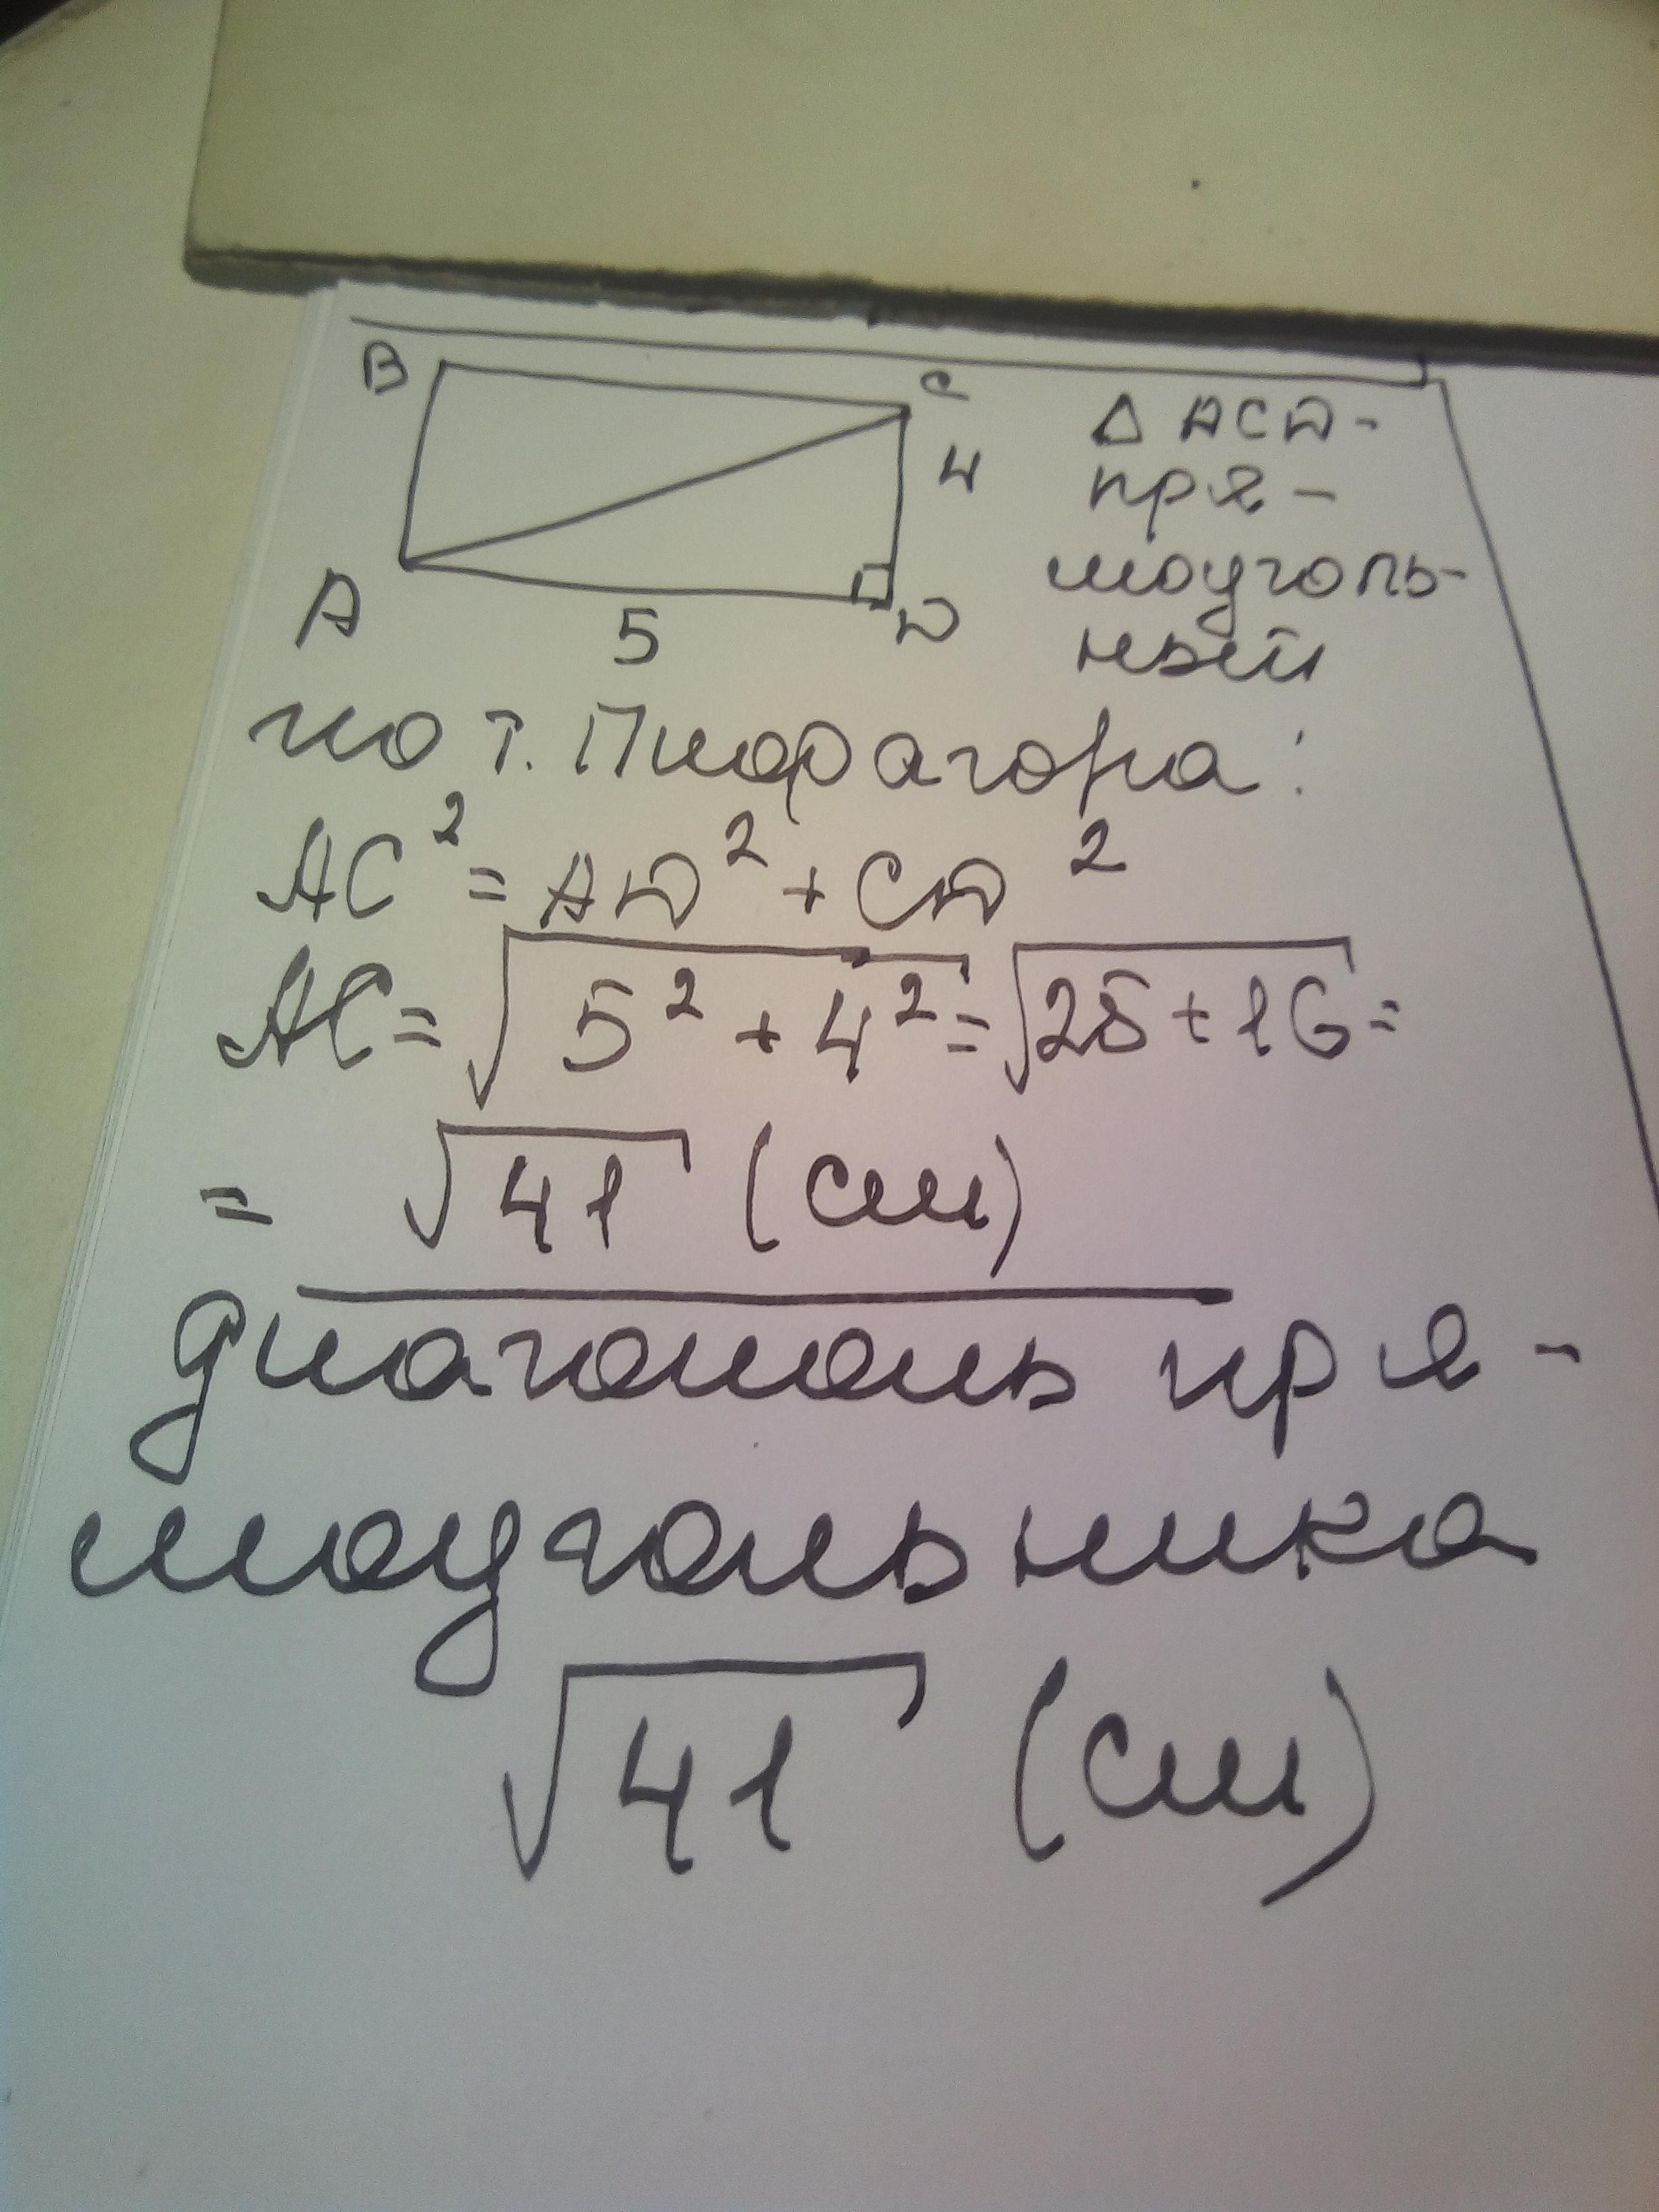 B
C
4
A
5
D
Δ ACD -
пря -
моуголь -
ный
по т. Пифагора:
AC² = AD² + CD²
AC = √5² + 4² = √25 + 16 =
= √41 (см)
диагональ пря -
моугольника
√41 (см)